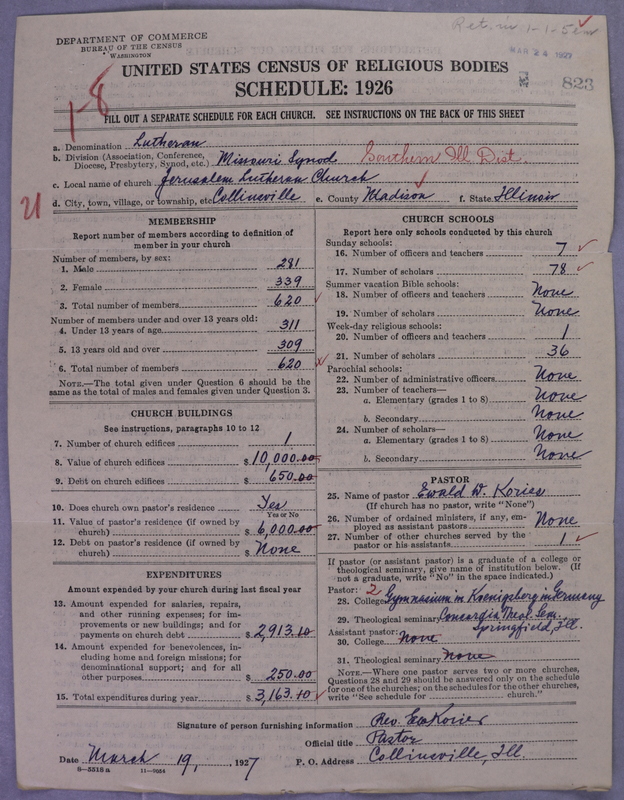 Ret. in 1-1-5
DEPARTMENT OF COMMERCE
BUREAU OF THE CENSUS
WASHINGTON
MAR 24 1927
823
UNITED STATES CENSUS OF RELIGIOUS BODIES
SCHEDULE: 1926
1-8
FILL OUT A SEPARATE SCHEDULE FOR EACH CHURCH. SEE INSTRUCTIONS ON THE BACK OF THIS SHEET
a. Denomination Lutheran
b. Division (Association, Conference, Diocese, Presbytery, Synod, etc.) Missouri Synod Southern Ill. Dist.
c. Local name of church Jerusalem Lutheran Church
d. City, town, village, or township, etc. Collinsville e. County Madison f. State Illinois
21
MEMBERSHIP
Report number of members according to definition of
member in your church
Number of members, by sex:
1. Male 281
2. Female 339
3. Total number of members 620
Number of members under and over 13 years old:
4. Under 13 years of age 311
5. 13 years old and over 309
6. Total number of members 620
NOTE.—The total given under Question 6 should be
same as the total of males and females given under Question 3.
CHURCH BUILDINGS
See instructions, paragraphs 10 to 12
7. Number of church edifices 1
8. Value of church edifices $10,000.00
9. Debt on church edifices $650.00
10. Does church own pastor's residence? Yes
Yes or No
11. Value of pastor's residence (if owned by
church) $6,000.00
12. Debt on pastor's residence (if owned by
church) $None
EXPENDITURES
Amount expended by your church during last fiscal year
13. Amount expended for salaries, repairs,
and other running expenses; for im-
provements or new buildings; and for
payments on church debt $2,913.10
14. Amount expended for benevolences, in-
cluding home and foreign missions; for
denominational support; and for all
other purposes $250.00
15. Total expenditures during year $3,163.10
CHURCH SCHOOLS
Report here only schools conducted by this church
Sunday schools:
16. Number of officers and teachers 7
17. Number of scholars 78
Summer vacation Bible schools:
18. Number of officers and teachers None
19. Number of scholars None
Week-day religious schools:
20. Number of officers and teachers 1
21. Number of scholars 36
Parochial schools:
22. Number of administrative officers None
23. Number of teachers—
a. Elementary (grades 1 to 8) None
b. Secondary None
24. Number of scholars—
a. Elementary (grades 1 to 8) None
b. Secondary None
PASTOR
25. Name of pastor Ewald W.
(If church has no pastor, write "None")
26. Number of ordained ministers, if any, em-
ployed as assistant pastors None
27. Number of other churches served by the
pastor or his assistants 1
If pastor (or assistant pastor) is a graduate of a college or
theological seminary, give name of institution below. (If
not a graduate, write "No" in the space indicated.)
Pastor: 2
28. College Gymnasium in Koenigsberg in Germany
29. Theological seminary Concordia Theol. Sem.
Springfield, Ill.
Assistant pastor:
30. College None
31. Theological seminary None
NOTE.—Where one pastor serves two or more churches,
Questions 28 and 29 should be answered only on the schedule
for one of the churches; on the schedules for the other churches,
write "See schedule for church."
Signature of person furnishing information Rev.
Official title Pastor
Date March 19, 1927 P. O. Address Collinsville, Ill.
8—5518 a 11—9034